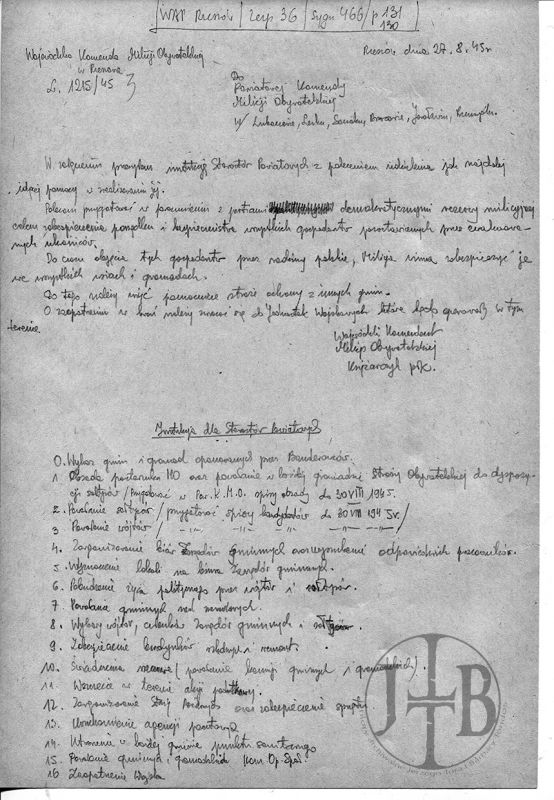 WAP Rzeszów / zesp 36 / Sygn 466 / p 131
130
Wojewódzka Komenda Milicji Obywatelskiej
w Rzeszowie
L. 1215/45
Rzeszów, dnia 27.8.45 r
Do
Powiatowej Komendy
Milicji Obywatelskiej
w/ Lubaczowie, Lesku, Sanoku, Brzozowie, Jarosławiu, Przemyślu.
W załączeniu przesyłam instrukcję Starostów Powiatowych z poleceniem udzielenia jak najdalej
idącej pomocy w realizowaniu jej.
Polecam przygotować w porozumieniu z partiami demokratycznymi rezerwy milicyjne
celem zabezpieczenia porządku i bezpieczeństwa wszystkich gospodarstw pozostawionych przez ewakuowa-
nych ukraińców.
Do czasu objęcia tych gospodarstw przez rodziny polskie, Milicja winna zabezpieczyć je
we wszystkich wsiach i gromadach.
Do tego należy użyć pomocnicze straże ochrony z innych gmin.
O zaopatrzenie w broń należy zwracać się do Jednostek Wojskowych które będą operować w tym
terenie
Wojewódzki Komendant
Milicji Obywatelskiej
Księżarczyk płk.
Instrukcja dla Starostów Powiatowych
0. Wykaz gmin i gromad opanowanych przez Banderowców.
1 Obsada posterunku MO oraz powołanie w każdej gromadzie Straży Obywatelskiej do dyspozy-
cji sołtysów / przygotować w Pow. K.M.O. spisy obsady do 30 VIII 1945.
2. Powołanie sołtysów / przygotować spisy kandydatów do 30 VIII 1945 r /
3 Powołanie wójtów / -"- -"- -"- -"- /
4. Zorganizowanie biur Zarządów gminnych oraz wyszukanie odpowiednich pracowników.
5. Wyszukanie lokali na biura Zarządów gminnych.
6. Pobudzenie życia politycznego przez wójtów i sołtysów.
7. Powołanie gminnych rad narodowych.
8. Wybory wójtów, członków Zarządów gminnych i sołtysów.
9. Zabezpieczenie budynków szkolnych i remont.
10. Świadczenia rzeczowe (powołanie komisji gminnych i gromadzkich).
11. Wzmożenie w terenie akcji podatkowej.
12. Zorganizowanie Straży Pożarnych oraz zabezpieczenie sprzętu.
13. Uruchomienie agencji pocztowych
14. Utworzenie w każdej gminie punktu sanitarnego
15. Powołanie gminnych i gromadzkich Kom. Op. Społ.
16 Zaopatrzenie Wojska
JTB